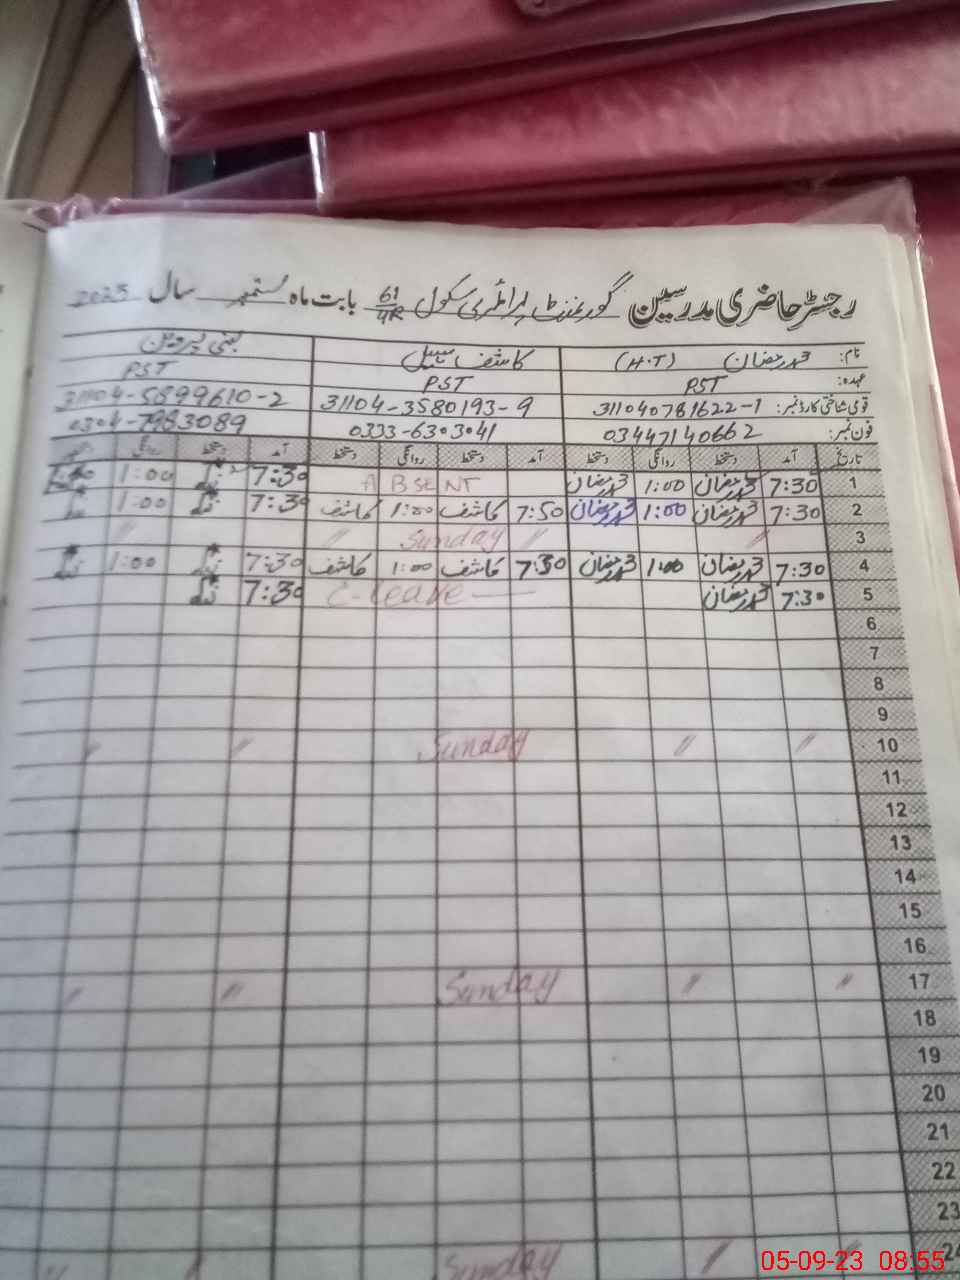 رجسٹر حاضری مدرسین گورنمنٹ پرائمری سکول 61/4R بابت ماہ ستمبر سال 2023
نام: محمد رمضان (H.T) کاشف سہیل بشریٰ پروین
عہدہ: PST PST PST
قومی شناختی کارڈ نمبر: 311040781622-1 31104-3580193-9 31104-5899610-2
فون نمبر: 03447140662 0333-6303041 0304-7983089
تاریخ آمد دستخط روانگی دستخط آمد دستخط روانگی دستخط آمد دستخط روانگی
1 7:30 محمد رمضان 1:00 محمد رمضان ABSENT 7:30 1:00
2 7:30 محمد رمضان 1:00 محمد رمضان 7:50 کاشف 1:00 کاشف 7:30 1:00
3 〃 〃 Sunday 〃 〃
4 7:30 محمد رمضان 1:00 محمد رمضان 7:30 کاشف 1:00 کاشف 7:30 1:00
5 7:30 محمد رمضان C-leave — 7:30
6
7
8
9
10 〃 〃 Sunday 〃 〃
11
12
13
14
15
16
17 〃 〃 Sunday 〃 〃
18
19
20
21
22
23
24 〃 〃 Sunday 〃 〃
05-09-23 08:55